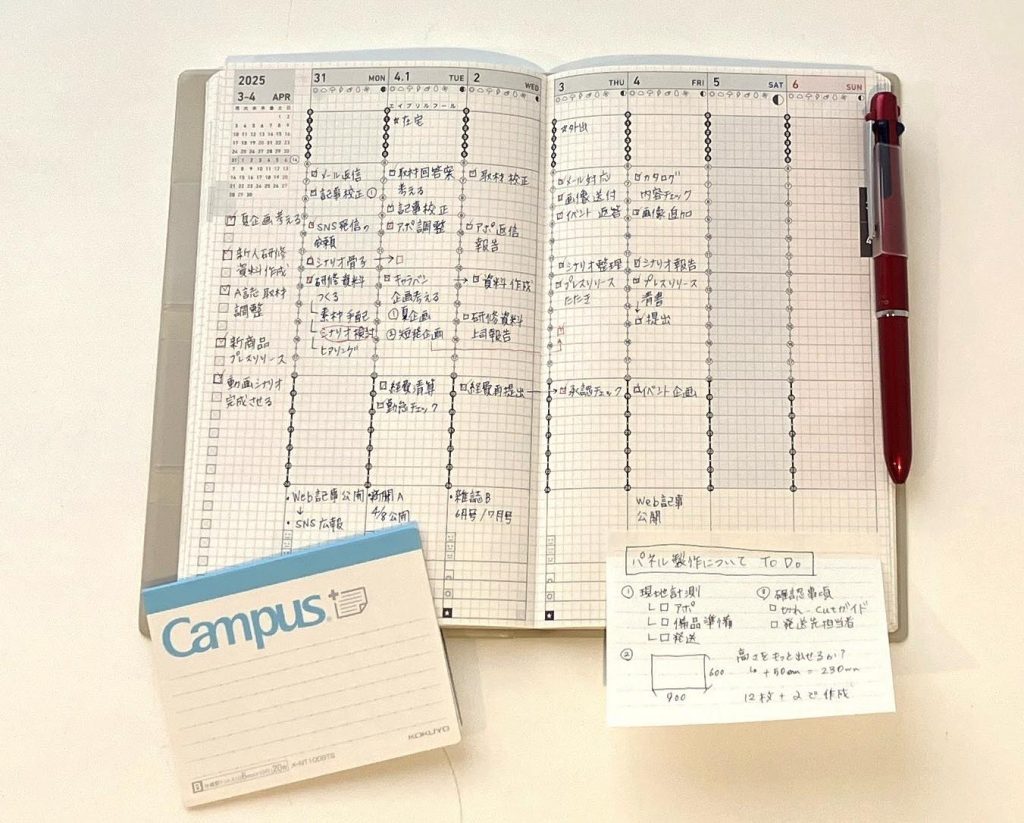 2025
3-4 APR
31 MON
4.1 TUE
2 WED
3 THU
4 FRI
5 SAT
6 SUN
エイプリルフール
☆在宅
☆外出
夏企画考える
新人研修
資料作成
A誌取材
調整
新商品
プレスリリース
動画シナリオ
完成させる
メール返信
記事校正①
SNS発信の
依頼
シナリオ骨子
研修資料
つくる
素材手配
シナリオ検討
ヒアリング
・Web記事公開
↓
・SNS広報
取材回答案
考える
記事校正
アポ調整
キャラバン
企画考える
①夏企画
②短篇企画
経費清算
勤怠チェック
・新聞A
4/8公開
取材校正
アポ返信
報告
資料作成
研修資料
上司報告
経費再提出
・雑誌B
6月号/7月号
メール対応
画像送付
イベント返答
シナリオ整理
プレスリリース
たたき
承認チェック
カタログ
内容チェック
画像追加
シナリオ報告
プレスリリース
清書
↓
提出
イベント企画
Web記事
公開
Campus
KOKUYO
パネル製作について To Do
①現地計測
アポ
備品準備
発送
②
600
900
③確認事項
Cutガイド
発送先担当者
高さをもっと出せるか?
+50mm = 230mm
12枚+2で作成